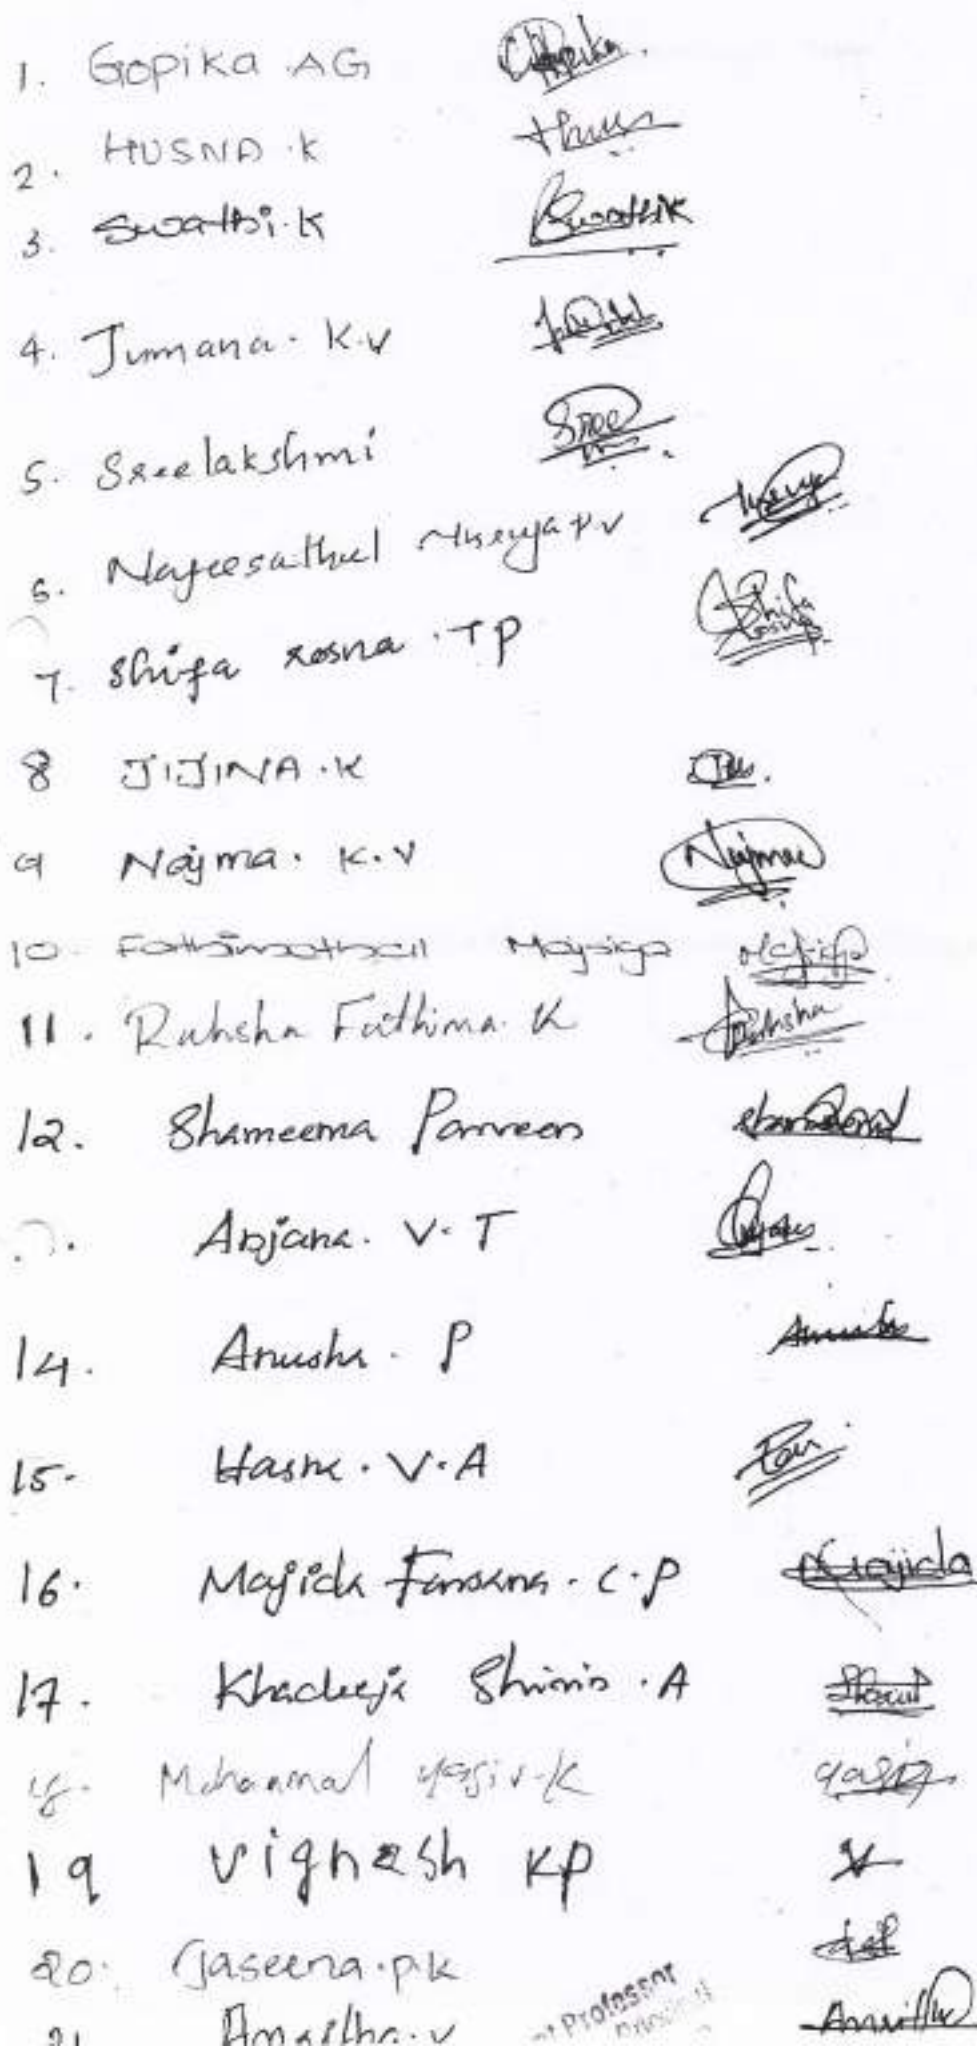 1. Gopika AG Gopika.
2. HUSNA.K
3. Swathi.K Swathi K
4. Jumana. K.V
5. Sreelakshmi Sree
6. Nafeesathul Nuseyba
7. Shifa rosna. TP Shifa rosna
8 JIJINA.K
9 Najma. K.V Najma
10. Fathimathull
11. Ruhsha Fathima. K Ruhsha
12. Shameema Parveen
Anjana. V.T
14. Anusha. P
15. Hasna. V.A
16. Majida Farsana. C.P Majida
17. Khadeeja Shirin. A
18. Mohammad yasir.K yasir
19 Vignesh KP V
20. Jaseena.p.k
21 Amritha.v Amritha
Professor